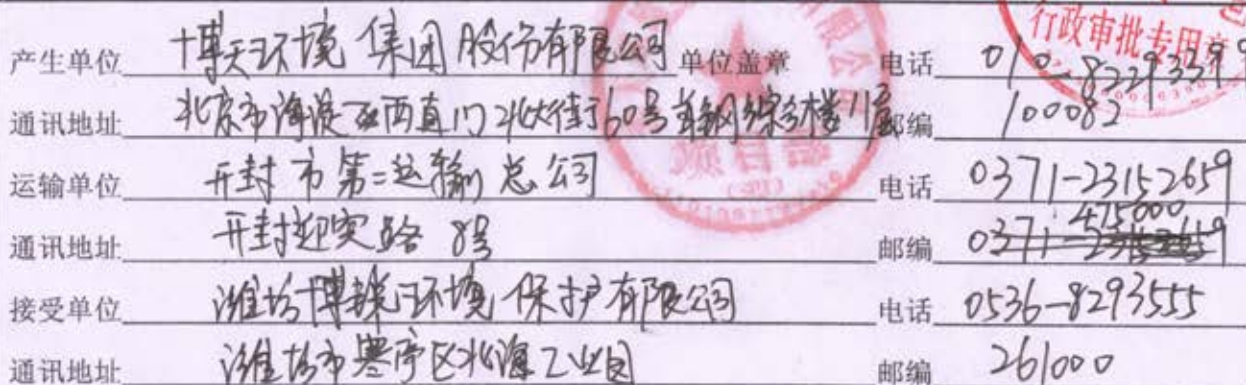 行政审批专用章
产生单位 博天环境集团股份有限公司 单位盖章 电话 010-82293399
通讯地址 北京市海淀区西直门北大街60号首钢综合楼11层 邮编 100082
运输单位 开封市第二运输总公司 电话 0371-23152659
475000
通讯地址 开封迎宾路8号 邮编
接受单位 潍坊博锐环境保护有限公司 电话 0536-8293555
通讯地址 潍坊市寒亭区北海工业园 邮编 261000